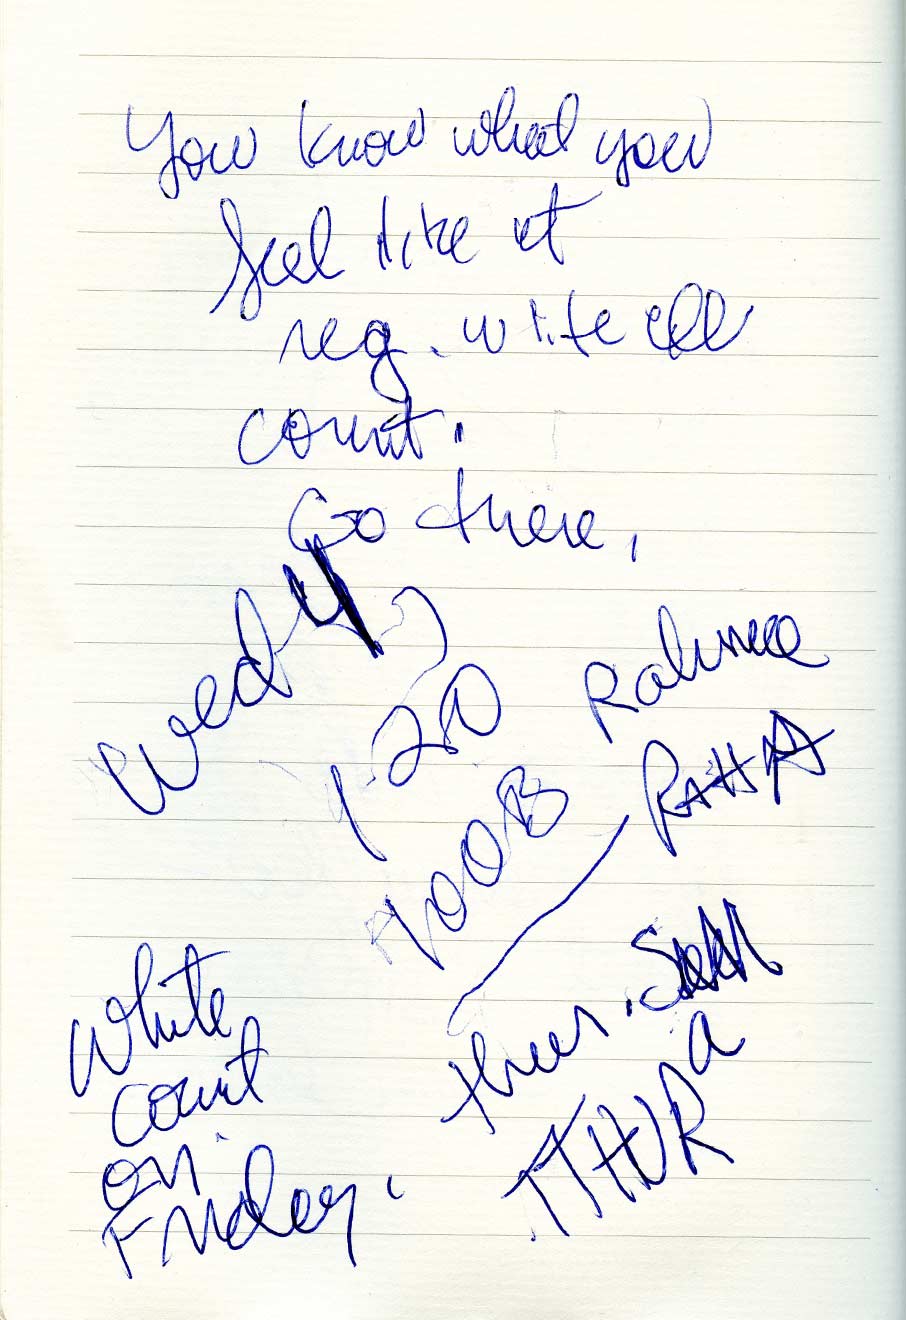 You know what you
feel like at
reg. white cell
count.
Go there,
Wed
1-20
700B
Rahma
RAHA
White
count
on
Friday.
thurs.
a
THUR